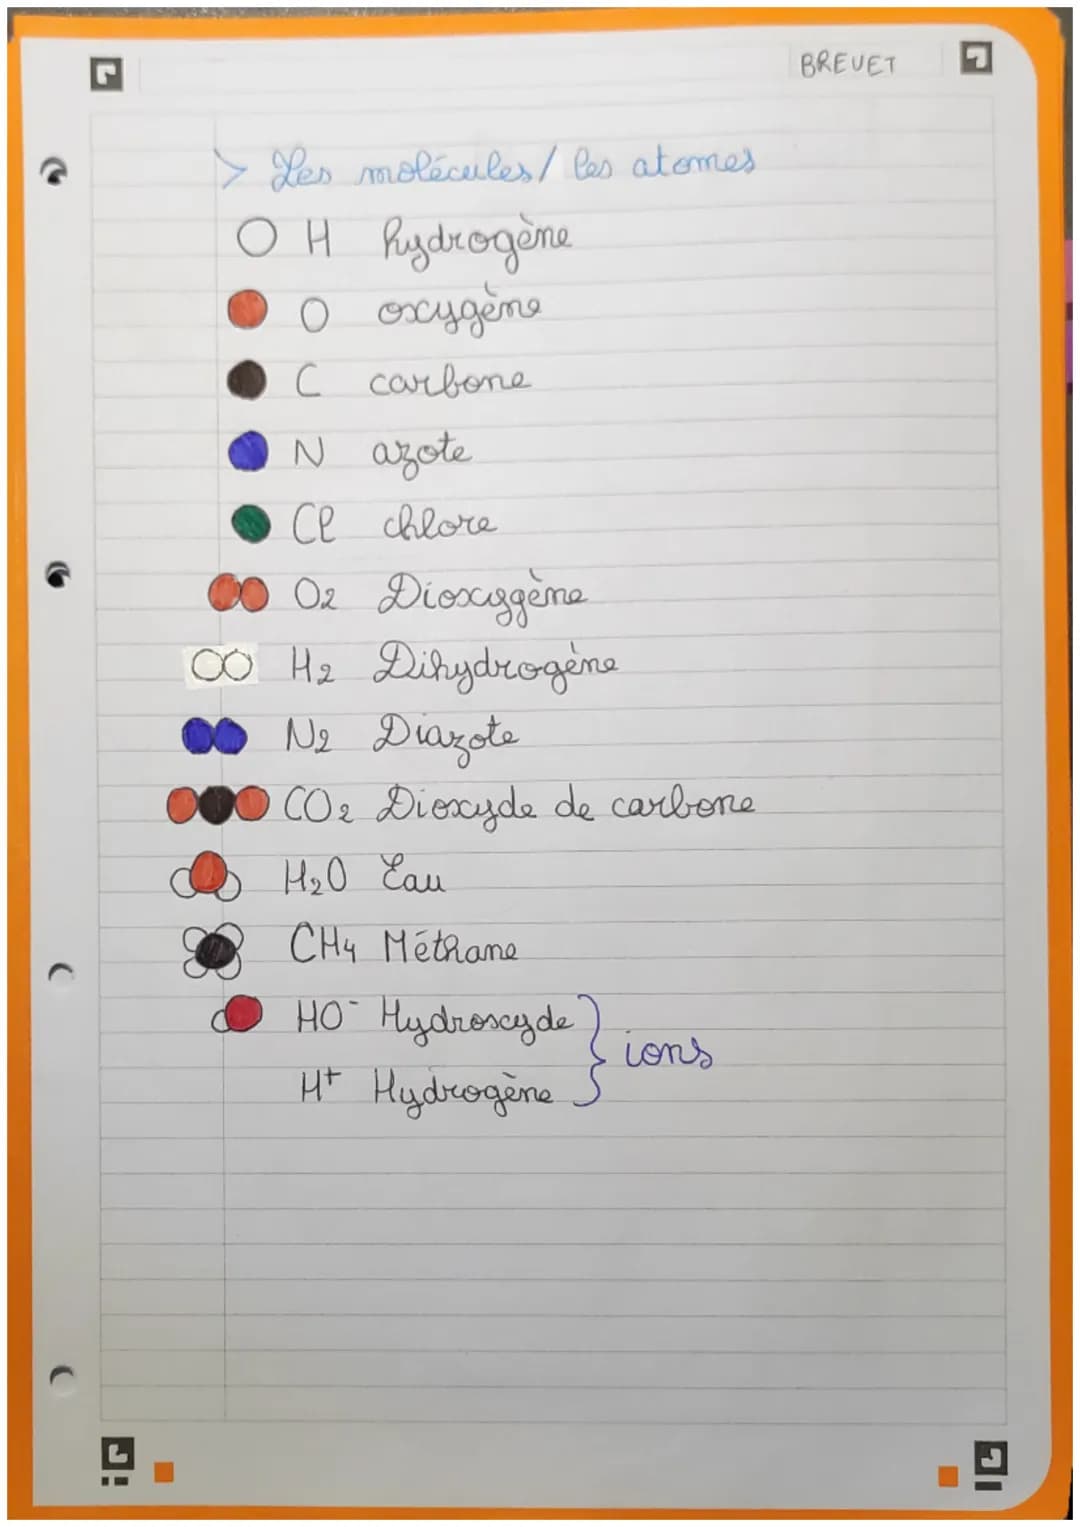 BREVET
> Les molécules / les atomes
H hydrogène
O oxygène
C carbone
N azote
Cl chlore
O2 Dioxygène
H2 Dihydrogène
N2 Diazote
CO2 Dioxyde de carbone
H2O Eau
CH4 Méthane
HO⁻ Hydroxyde
ions
H⁺ Hydrogène